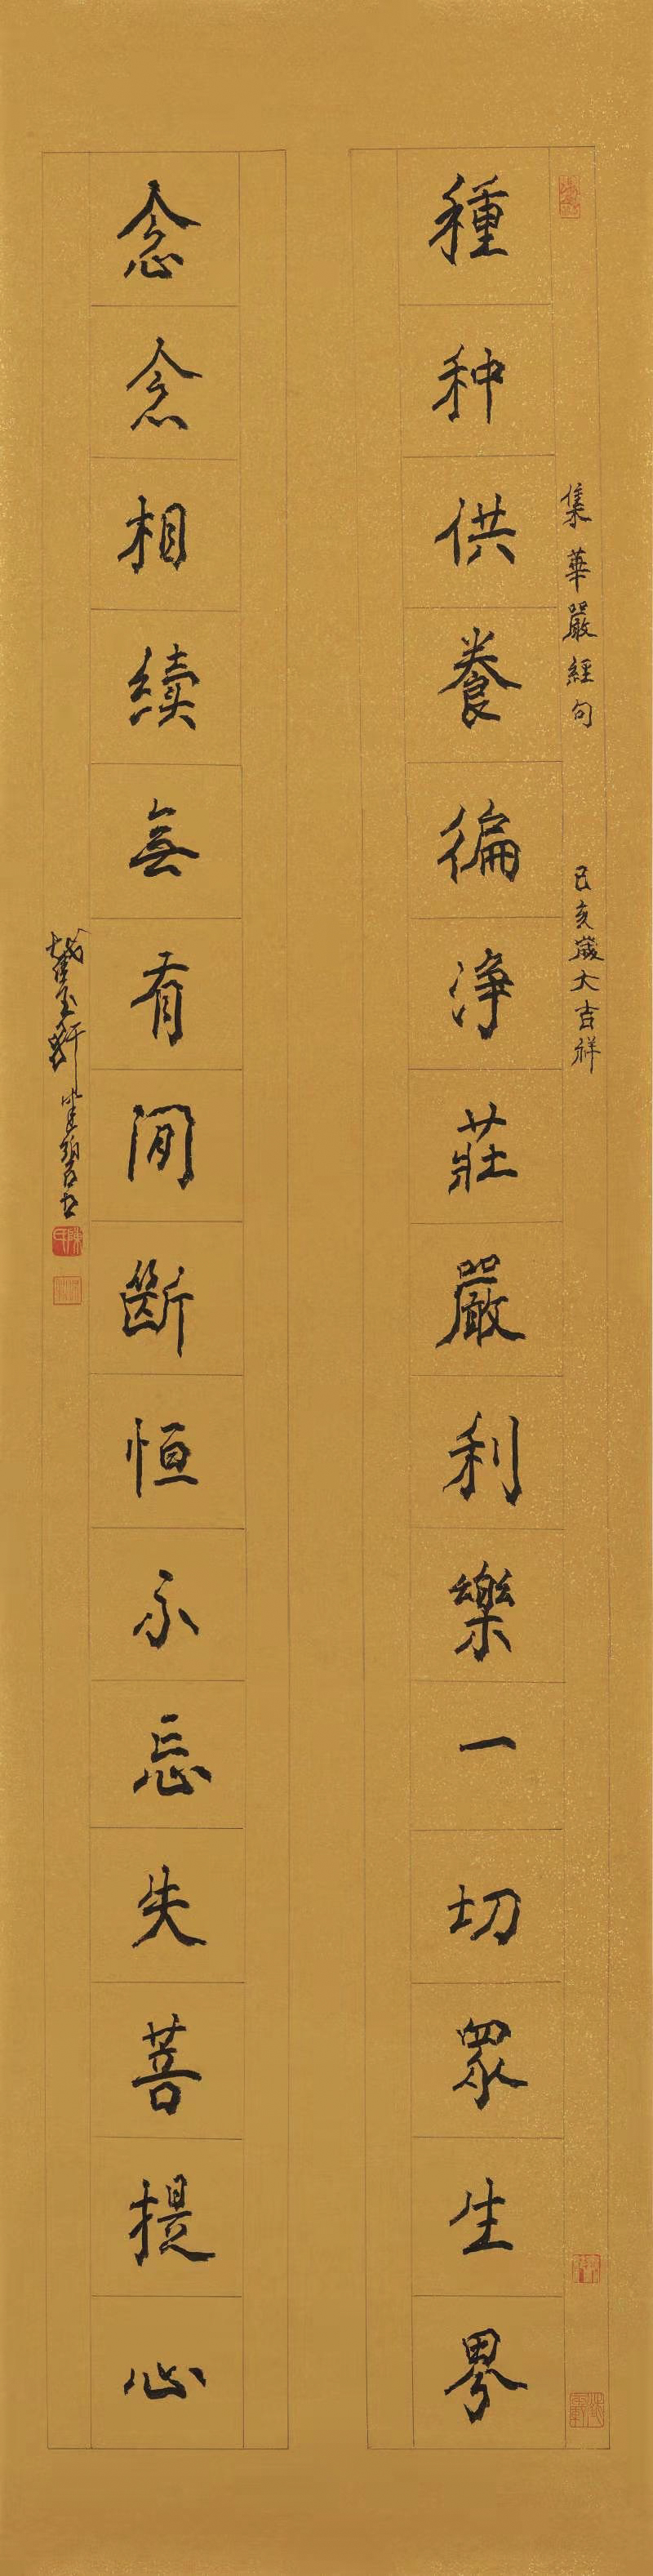 集華嚴經句 己亥歲大吉祥
種种供養徧淨莊嚴利樂一切眾生界
念念相續無有閒斷恒不忘失菩提心